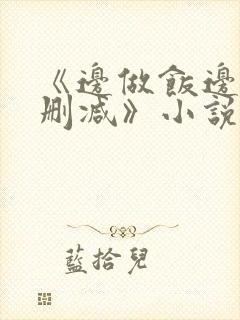 《邊做飯邊
刪減》小說
藍拾兒